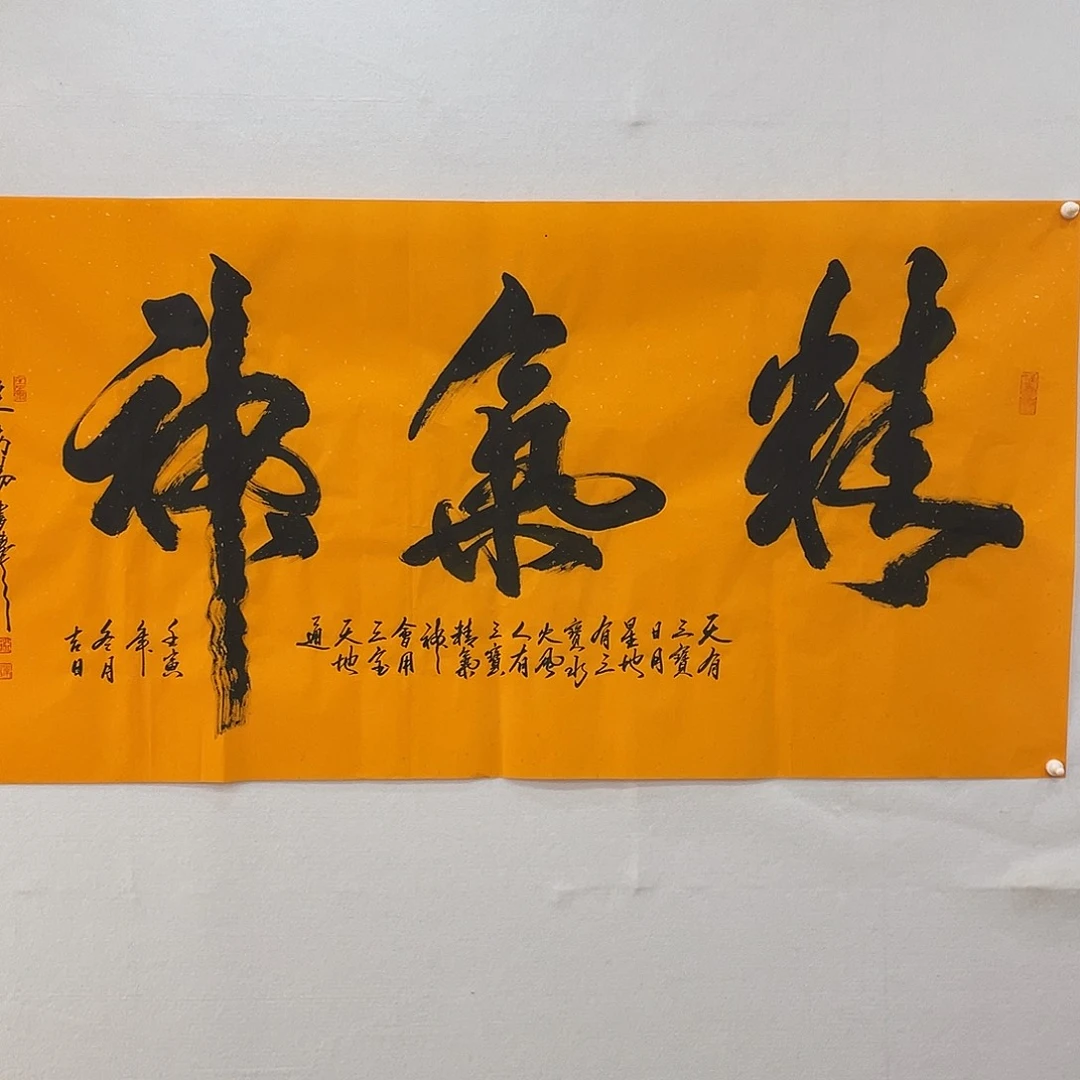 精氣神
天有
三寶
日月
星地
有三
寶水
火風
人有
三寶
精氣
神
會用
三宝
天地
通
壬寅
年
冬月
吉日